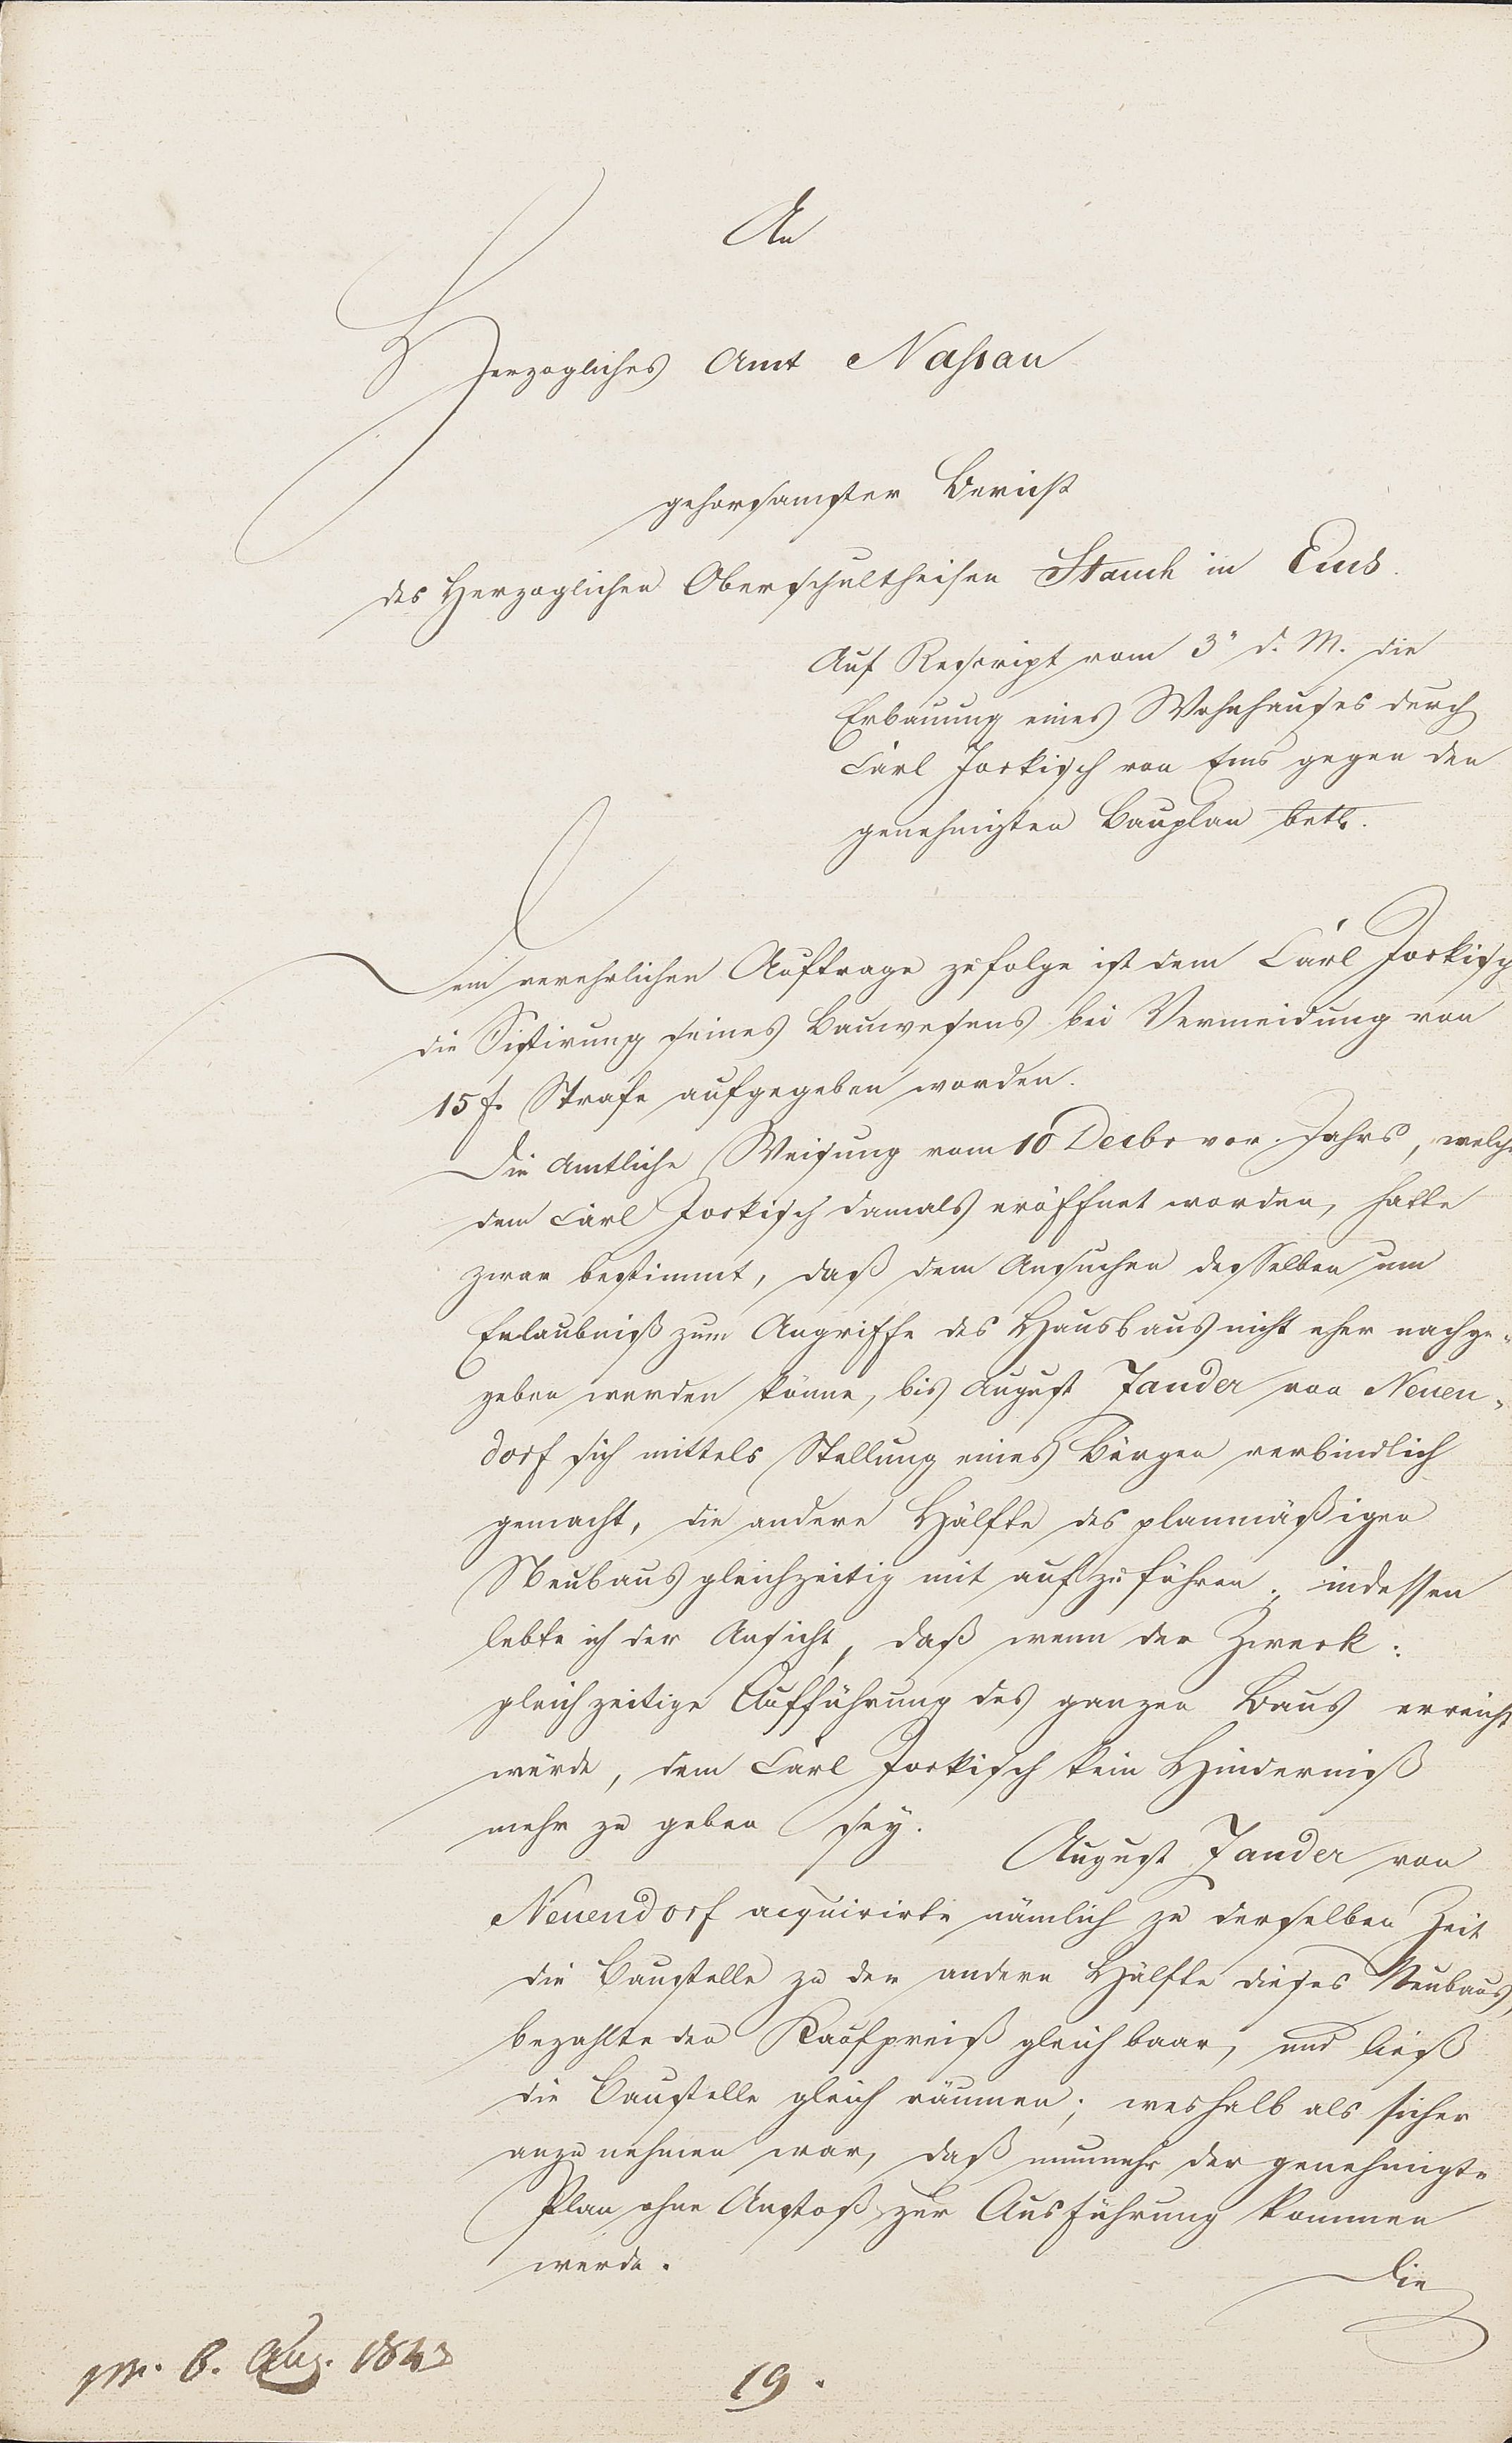 An
Herzogliches Amt Nassau
gehorsamster Bericht
des Herzoglichen Oberschultheisen Stauch in Ems.
Auf Rescript vom 3" d. M. die
Erbauung eines Wohnhauses durch
Carl Jorkisch von Ems gegen den
genehmigten Bauplan betr.
Dem verehrlichen Auftrage zufolge ist dem Carl Jorkisch
die Sistirung seines Bauwesens bei Vermeidung von
15 f. Strafe aufgegeben worden.
Die Amtliche Weisung vom 10 Decbr vor. Jahrs, welche
dem Carl Jorkisch damals eröffnet worden, hatte
zwar bestimmt, daß dem Ansuchen desselben um
Erlaubniß zum Angriffe des Hausbaus nicht eher nachge-
geben werden könne, bis August Zander von Neuen-
dorf sich mittels Stellung eines Bürgen verbindlich
gemacht, die andere Hälfte des planmäßigen
Neubaus gleichzeitig mit aufzuführen; indessen
lebte ich der Ansicht, daß wenn der Zweck:
gleichzeitige Aufführung des ganzen Baus erreicht
würde, dem Carl Jorkisch kein Hinderniß
mehr zu geben sey.
August Zander von
Neuendorf acquirirte nämlich zu derselben Zeit
die Baustelle zu der andern Hälfte dieses Neubaus,
bezahlte den Kaufpreiß gleich baar, und ließ
die Baustelle gleich räumen; weshalb als sicher
anzunehmen war, daß nunmehr der genehmigte
Plan ohne Anstoß zur Ausführung kommen
werde.
Die
pr. 8. Aug. 1843
19.